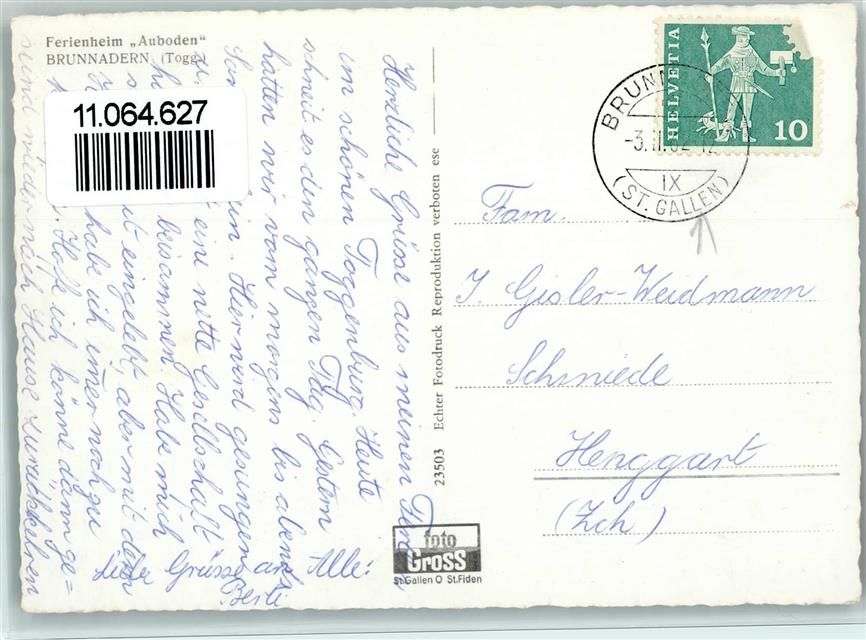 Ferienheim „Auboden"
BRUNNADERN (Togg.)
11.064.627
Herzliche Grüsse aus meinen Ferien
im schönen Toggenburg. Heute
schneit es den ganzen Tag. Gestern
hatten wir vom morgens bis abends
Hier wird gesungen
eine nette Gesellschaft
beisammen. Habe mich
eingelebt, aber mit dem
habe ich immer noch zu
Hoffe ich könne dann ge=
sund wieder nach Hause zurückkehren
Liebe Grüsse an Alle:
Berti
23503 Echter Fotodruck Reproduktion verboten ese
foto
Gross
St.Gallen O St.Fiden
HELVETIA
10
BRUNN
-3.II.62-12
IX
(ST. GALLEN)
Fam.
J. Gisler-Weidmann
Schmiede
Henggart
(Zch)